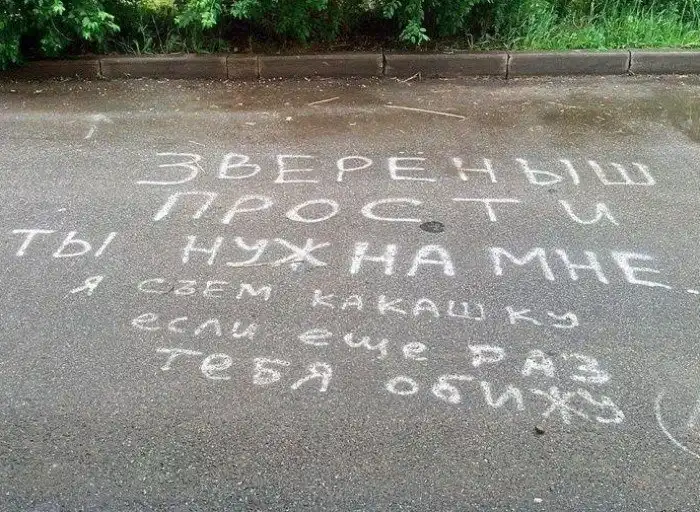 ЗВЕРЕНЫШ
ПРОСТИ
ТЫ НУЖНА МНЕ.
Я СЪЕМ КАКАШКУ
если еще РАЗ
Тебя обижу